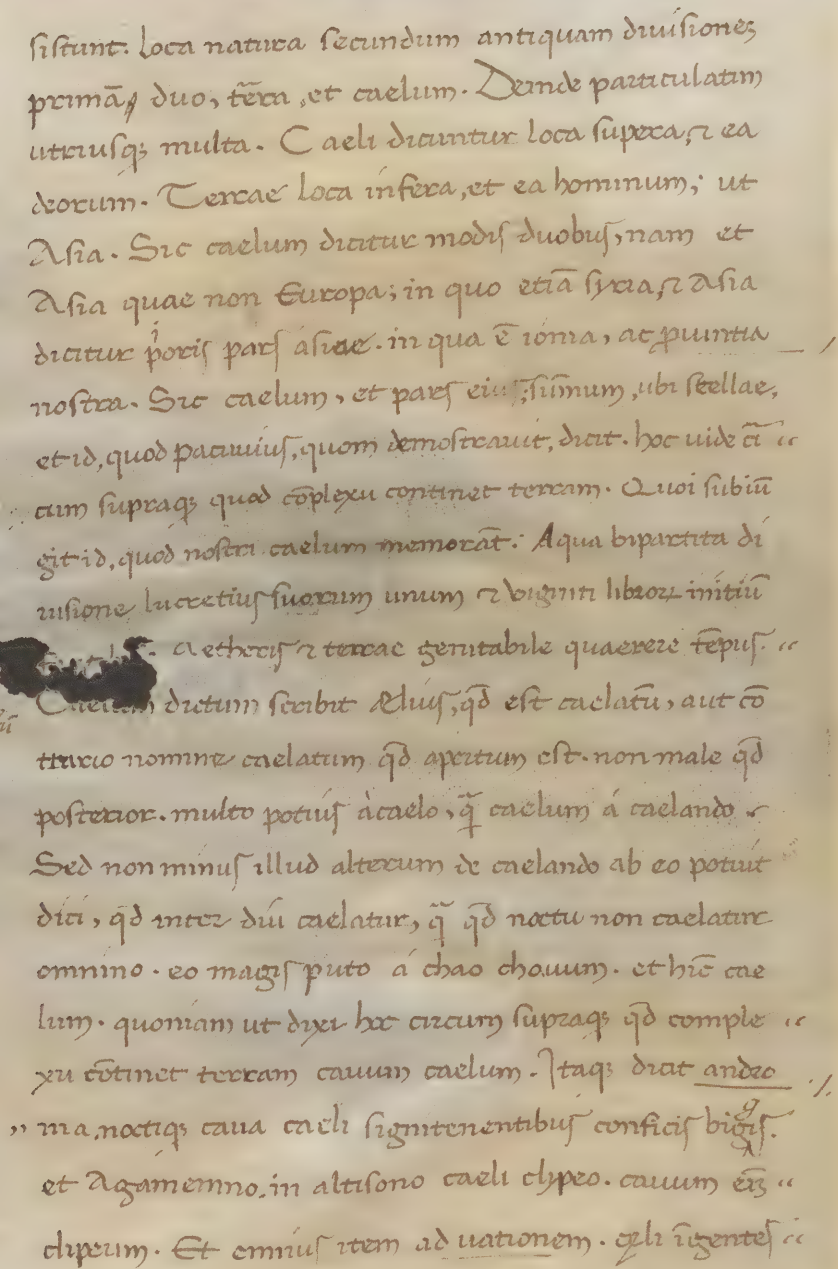 sistunt. loca natura secundum antiquam diuisionēs
primā, duo, tēra, et caelum. Deinde particulatim
utriusq; multa. Caeli dicuntur loca supera, & ea
deorum. Terrae loca infera, et ea hominum; ut
Asia. Sic caelum dicitur modis duobus, nam et
Asia quae non Europa; in quo etiā syria, & Asia
dicitur p̄oris pars asiae. in qua ē ionia, ac ꝓuintia
nostra. Sic caelum, et pars eius, sūmum, ubi stellae,
et id, quod pacuuius, quom demostrauit, dicit. hoc uide cī
cum supraq; quod cōplexu continet terram. Quoi subiū
git id, quod nostri caelum memorāt. Aqua bipartita di
uisione lucretius suorum unum & viginti libroꝝ initiū
Aetheris & terrae genitabile quaerere tēpus.
dictum scribit Ælius, qd̄ est caelatū, aut cō
trario nomine caelatum qd̄ apertum est. non male qd̄
posterior. multo potius a caelo, q̄ caelum á caelando
Sed non minus illud alterum de caelando ab eo potuit
dici, qd̄ inter diu caelatur, q̄ qd̄ noctu non caelatur
omnino. eo magis puto á chao chouum. et hīc cae
lum. quoniam ut dixi hoc circum supraq; qd̄ comple
xu cōtinet terram cauum caelum. Itaq; dicit andro
ma, noctiq; caua caeli signitenentibus conficis bigis.
et Agamemno, in altisono caeli clypeo. cauum eīȝ
clipeum. Et ennius item ad uationem. cęli īgentes